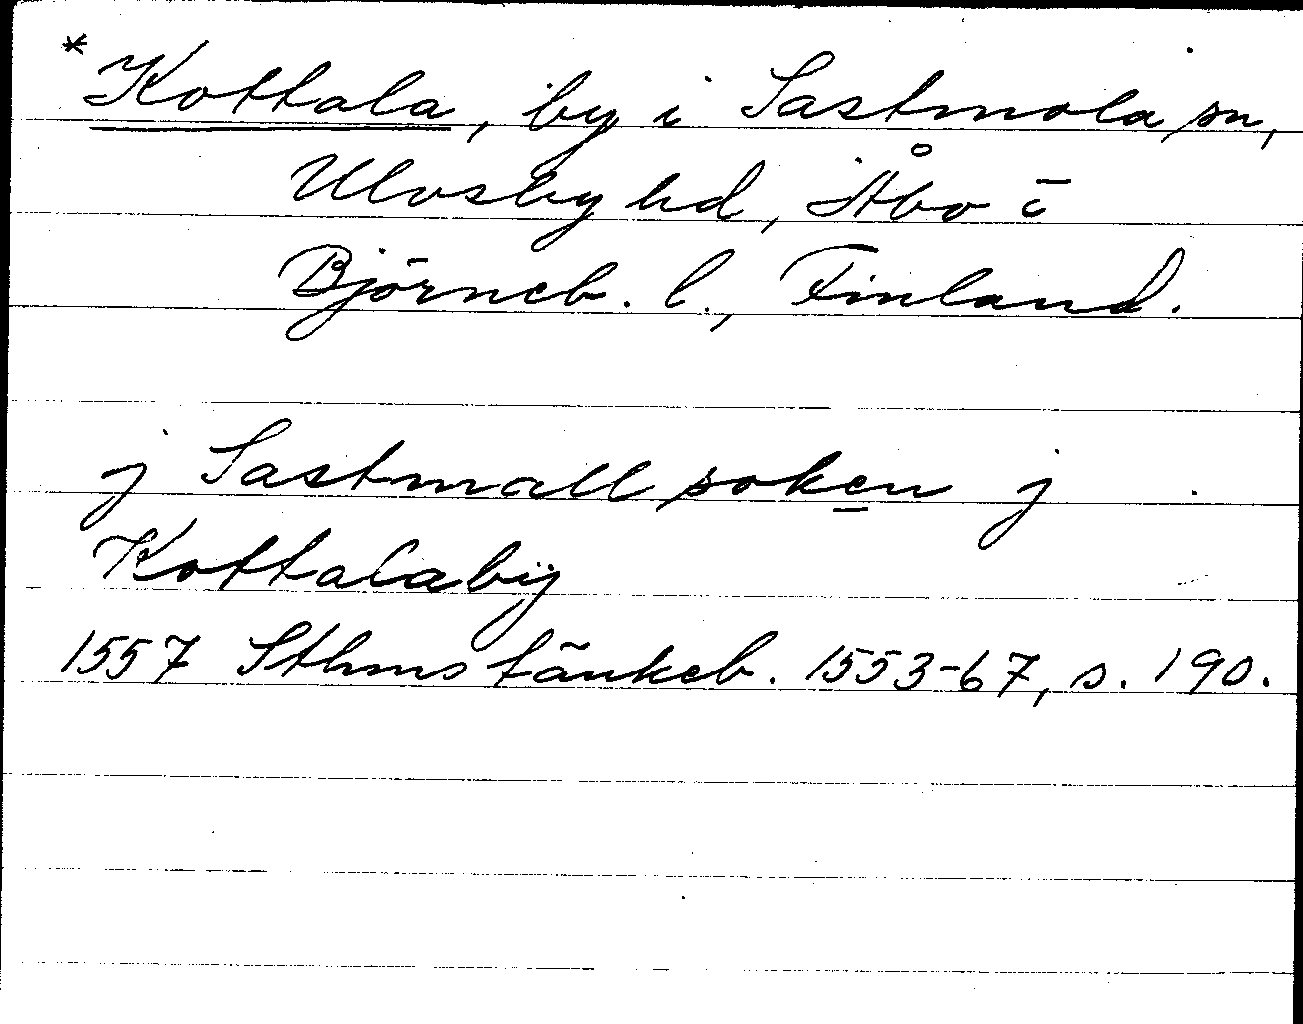 * Kottala, by i Sastmola sn,
Ulvsby hd, Åbo o
Björneb. l., Finland.
j Sastmall soken j
Kottalabÿ
1557 Sthms tänkeb. 1553-67, s. 190.